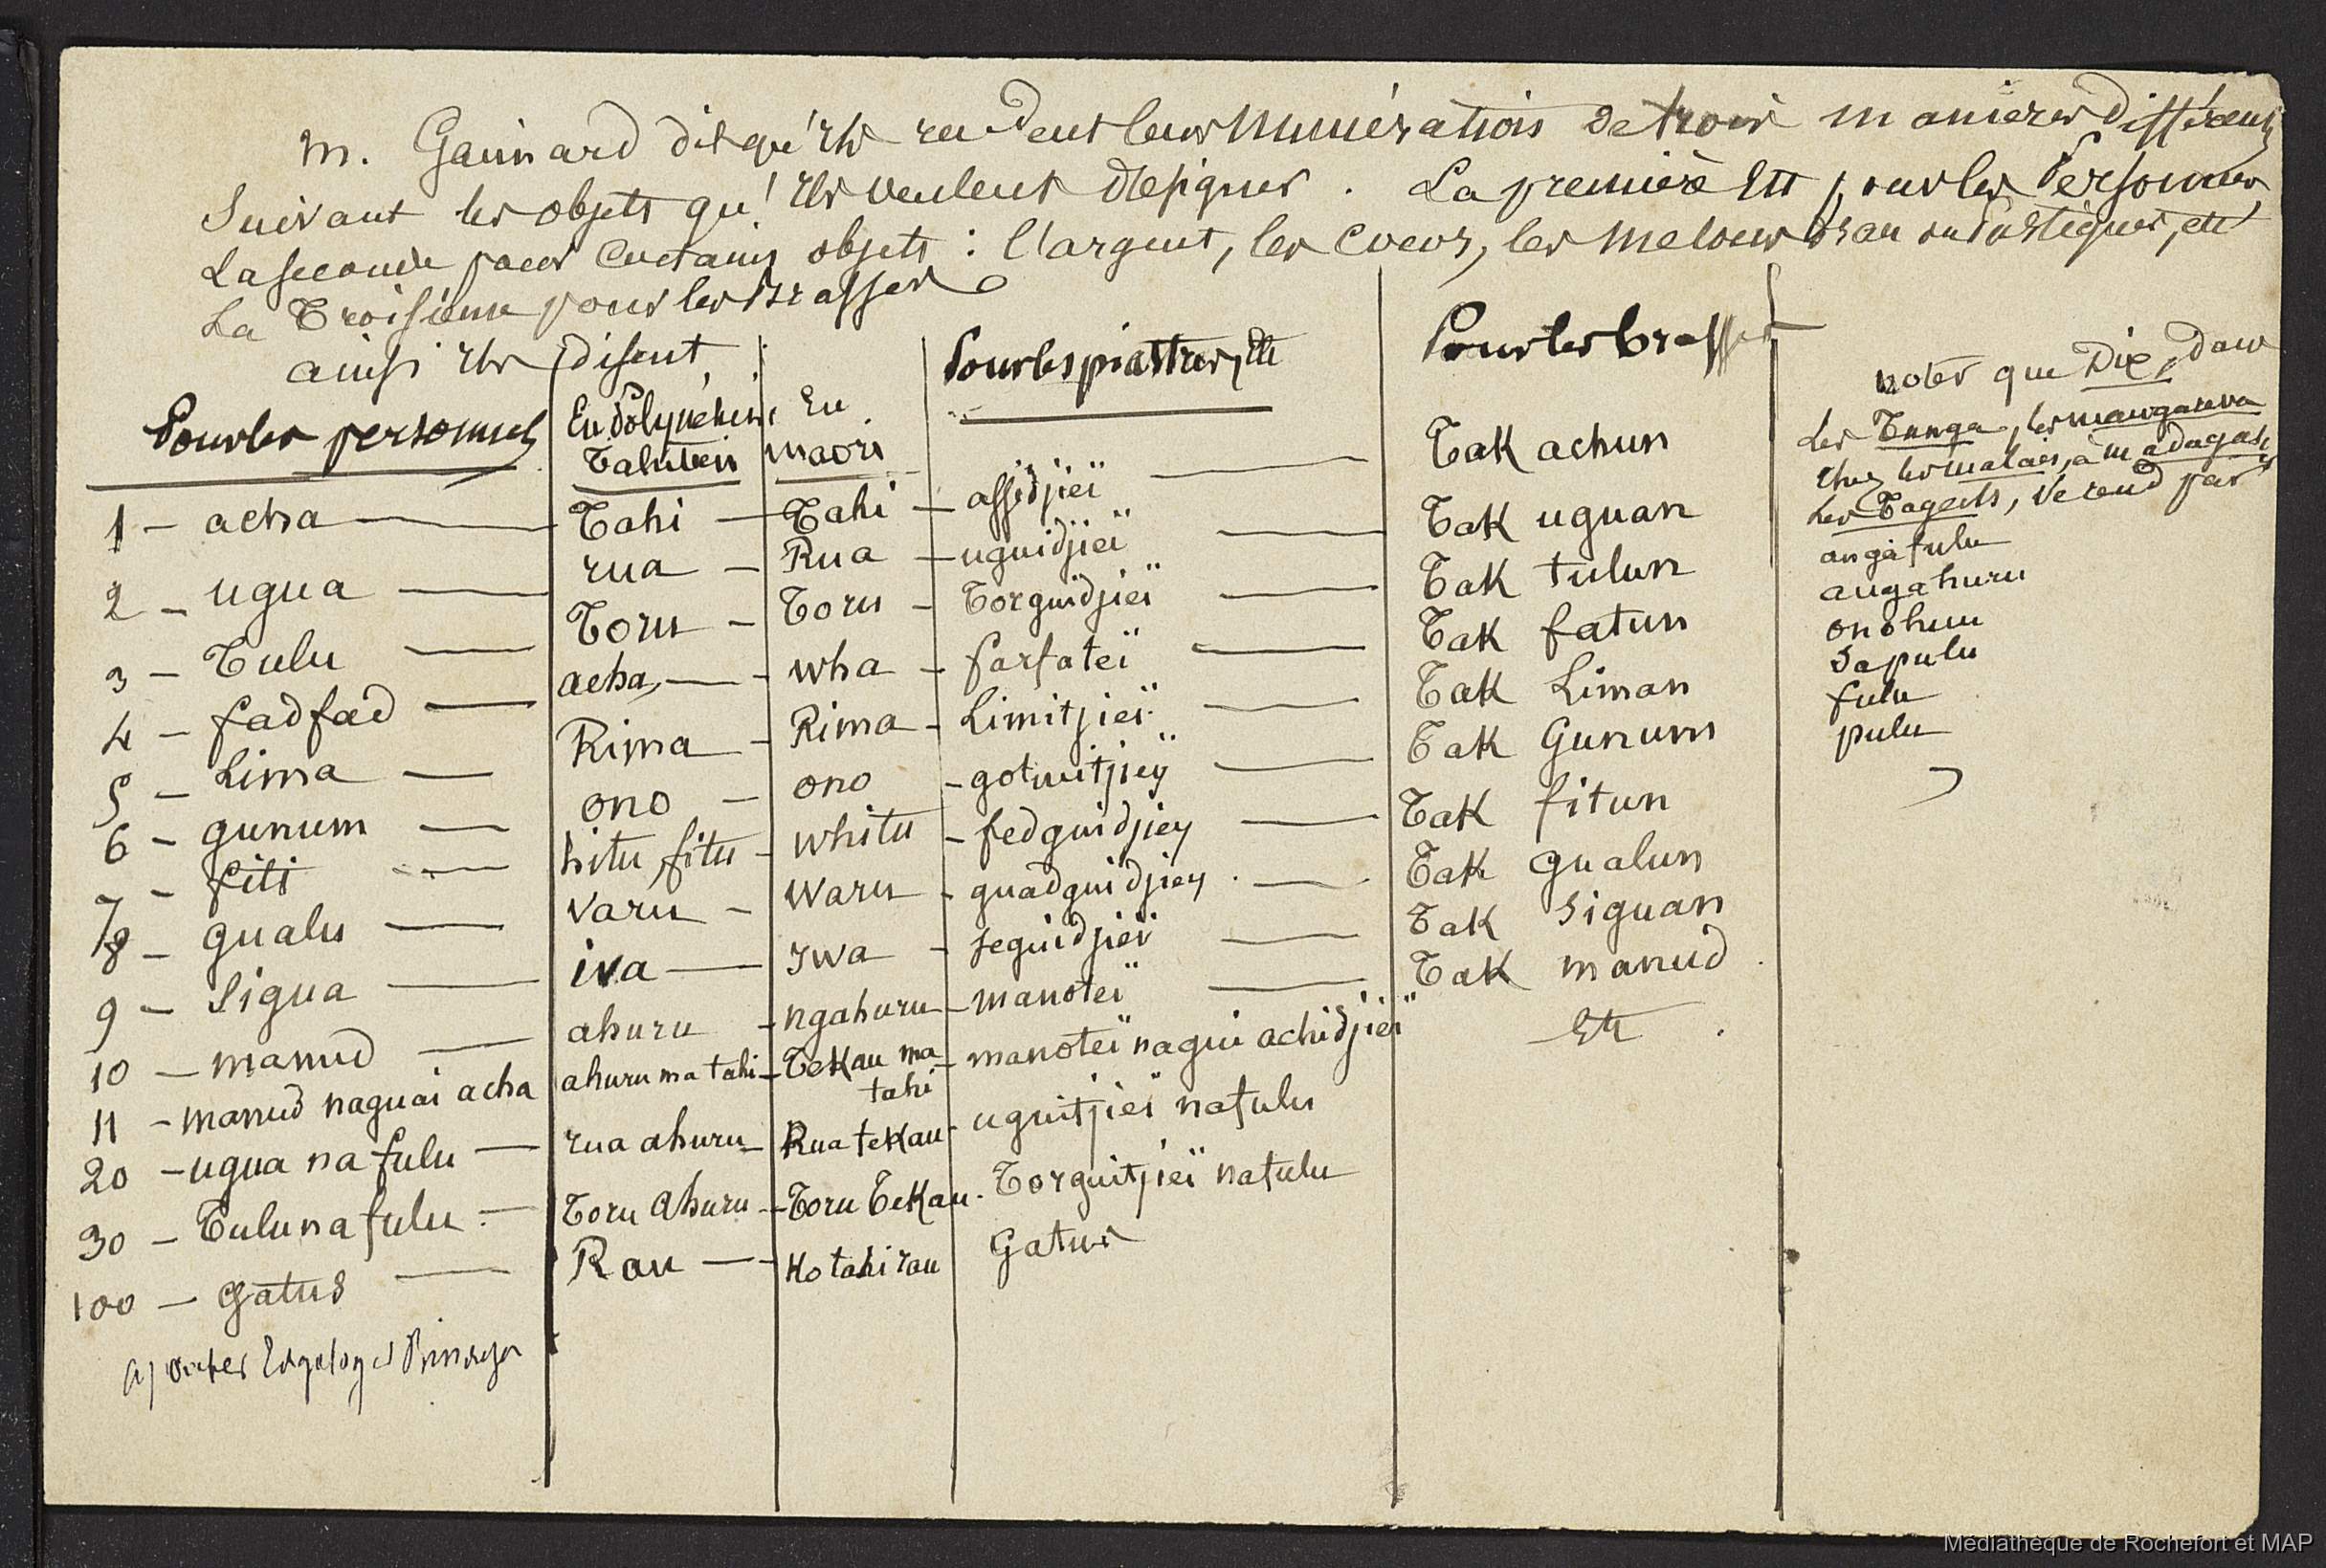 M. Gaimard dit qu'ils rendent leurs numérations de trois manieres différentes
Suivant les objets qu'ils veulent designer. La première est pour les Personnes,
La seconde pour certains objets : l'argent, les Cocos, les Melons d'eau ou Pastèques, etc
La Troisième pour les Brasses
ainsi ils disent
Pour les personnes
En Polynésien Tahitien
En maori
Pour les piastres, etc
Pour les brasses
1 - acha — Tahi — Tahi — assidjieï — Tak achun
2 - ugua — rua — Rua — uguidjieï — Tak uguan
3 - Tulu — Toru — Toru — Torguidjieï — Tak tulun
4 - fadfad — aeha — wha — farfateï — Tak fatun
5 - Lima — Rima — Rima — Limitjieï — Tak Liman
6 - gunum — ono — ono — gotuitjiey — Tak Gunum
7 - fiti — hitu, fitu — whitu — fedguidjiey — Tak fitun
8 - gualu — varu — waru — guadguidjiey — Tak gualun
9 - Sigua — iva — Iwa — seguidjieï — Tak Siguan
10 - manud — ahuru — ngahuru — manoteï — Tak manud
Etc
11 - manud naguai acha — ahuru ma tahi — Tekau ma tahi — manoteï nagui achidjieï
20 - ugua na fulu — rua ahuru — Rua tekau - uguitjieï nafulu
30 - Tulu na fulu — Toru ahuru — Toru Tekau - Torguitjieï nafulu
100 - gatus — Rau — Ko tahi rau Gatus
noter que Dix, dans
les Tonga, les mangareva
chez les malais, à madagasc
les Tagals, se rend par
angafulu
angahuru
onohuu
Sapulu
fulu
pulu